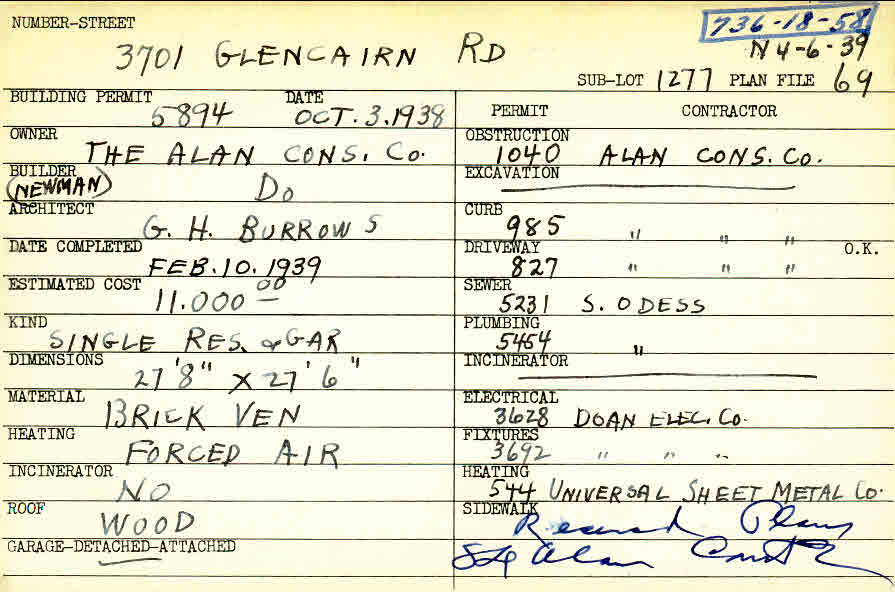 NUMBER-STREET
736-18-58
3701 GLENCAIRN RD
N 4-6-39
SUB-LOT 1277 PLAN FILE 69
BUILDING PERMIT DATE
5894 OCT. 3. 1938
OWNER
THE ALAN CONS. CO.
BUILDER
(NEWMAN) DO
ARCHITECT
G. H. BURROWS
DATE COMPLETED
FEB. 10. 1939
ESTIMATED COST
11.000 00
KIND
SINGLE RES. & GAR
DIMENSIONS
27'8" X 27'6"
MATERIAL
BRICK VEN
HEATING
FORCED AIR
INCINERATOR
NO
ROOF
WOOD
GARAGE-DETACHED-ATTACHED
PERMIT CONTRACTOR
OBSTRUCTION
1040 ALAN CONS. CO.
EXCAVATION
CURB
985 " " "
DRIVEWAY O.K.
827 " " "
SEWER
5231 S. ODESS
PLUMBING
5454 "
INCINERATOR
ELECTRICAL
3628 DOAN ELEC. CO.
FIXTURES
3692 " " "
HEATING
544 UNIVERSAL SHEET METAL CO.
SIDEWALK
Plans
Alan